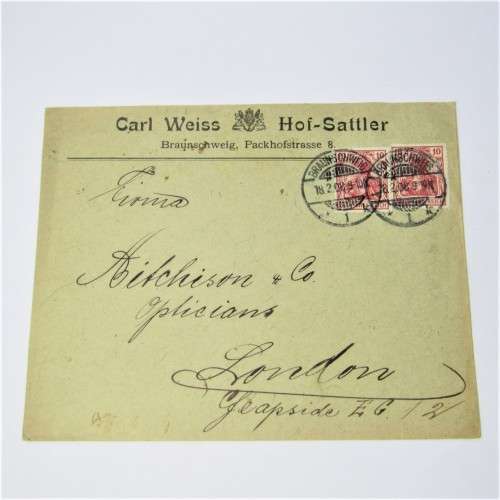 Carl Weiss Hof-Sattler
Braunschweig, Packhofstrasse 8.
10 10
BRAUNSCHWEIG BRAUNSCHWEIG
18.2.08.9-10V. 18.2.08.9-10V.
* 1 k * 1 k
Firma
Aitchison & Co.
Opticians
London
Cheapside E.C. 12